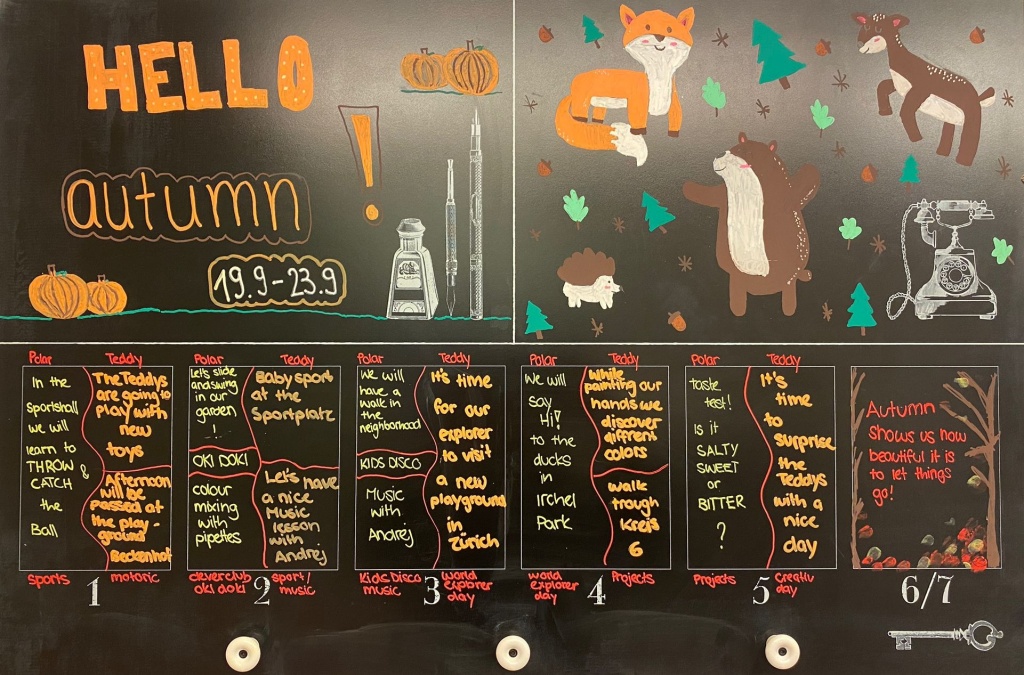 HELLO
!
autumn
19.9-23.9
Polar
In the
Sportshall
we will
learn to
THROW &
CATCH
the
Ball
Teddy
The Teddys
are going to
play with
new
toys
Afternoon
will be
passed at
the play-
ground
Beckenhof
sports
motoric
1
Polar
Let's slide
and swing
in our
garden
!
OKI DOKI
colour
mixing
with
pipettes
Teddy
Baby sport
at the
Sportplatz
Let's have
a nice
Music
lesson
with
Andrej
cleverclub
oki doki
sport/
music
2
Polar
We will
have a
walk in
the
neighborhood
KIDS DISCO
Music
with
Andrej
Teddy
It's time
for our
explorer
to visit
a new
playground
in
Zürich
Kids Disco
music
world
explorer
day
3
Polar
We will
say
Hi!
to the
ducks
in
Irchel
Park
Teddy
While
painting our
hands we
discover
diffrent
colors
walk
trough
Kreis
6
world
explorer
day
Projects
4
Polar
taste
test!
Is it
SALTY
SWEET
or
BITTER
?
Teddy
It's
time
to
surprise
the
Teddys
with a
nice
day
Projects
Creativ
day
5
Autumn
shows us how
beautiful it is
to let things
go!
6/7